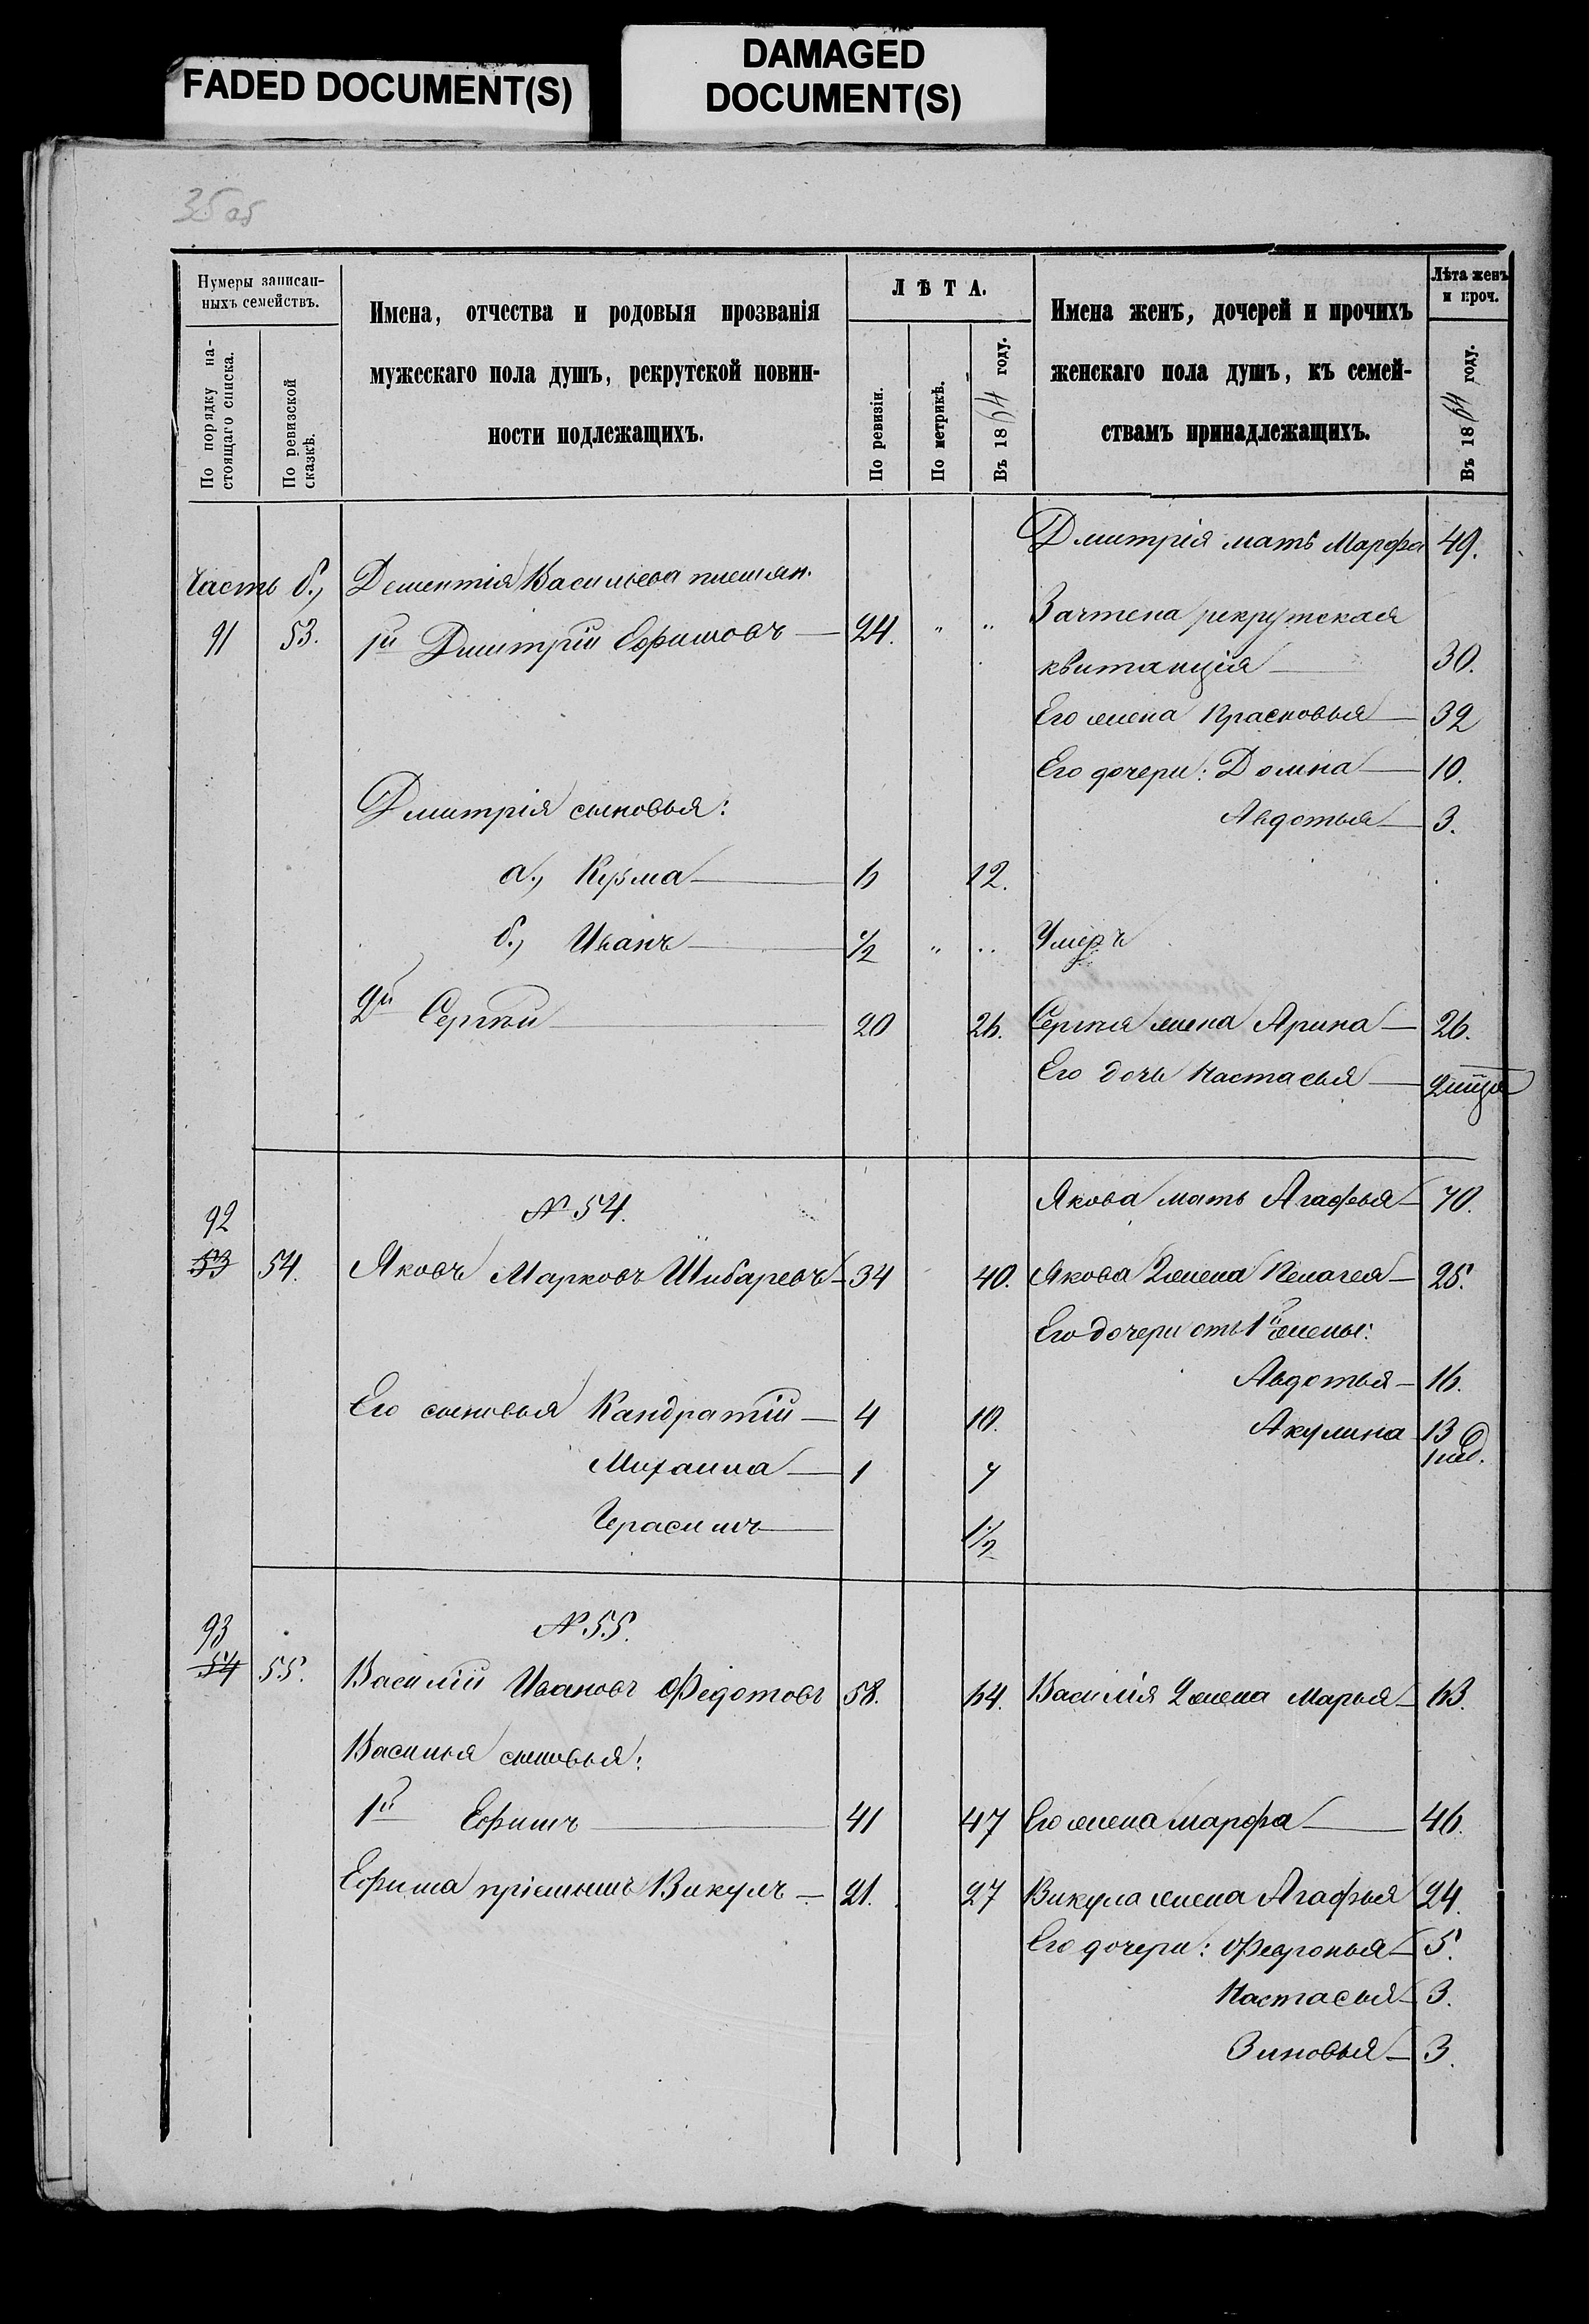 FADED DOCUMENT(S)
DAMAGED
DOCUMENT(S)
35 об
Нумеры записан-
ныхъ семействъ.
По порядку на-
стоящаго списка.
По ревизской
сказкѣ.
Имена, отчества и родовыя прозванія
мужескаго пола душъ, рекрутской повин-
ности подлежащихъ.
ЛѢТА.
По ревизіи.
По метрикѣ.
Въ 1864 году.
Имена женъ, дочерей и прочихъ
женскаго пола душъ, къ семей-
ствамъ принадлежащихъ.
Лѣта женъ
и проч.
Въ 1864 году.
Дмитрія мать Марфа 49.
Часть б., Дементія Васильева племян.
91 53. 1й Дмитрій Ефимовъ — 24. " " Зачтена рекрутская
квитанція — 30.
Его жена Прасковья — 32
Его дочери: Домна — 10.
Дмитрія сыновья: Авдотья — 3.
а., Кузма — 6 12.
б., Иванъ — 1/2 " " Умеръ
2й Сергѣй — 20 26. Сергѣя жена Арина — 26.
Его дочь Настасья —
92 № 54. Якова мать Агафья — 70.
53 54. Яковъ Марковъ Шибаревъ — 34 40. Якова 2 жена Пелагея — 25.
Его дочери отъ 1й жены:
Авдотья — 16.
Его сыновья Кандратій — 4 10. Акулина 13
1 нед.
Михаила — 1 7
Герасимъ — 1/2
93 № 55.
54 55. Василій Ивановъ Федотовъ 58. 64. Василія 2 жена Марья — 63.
Василья сыновья:
1й Ефимъ — 41 47 Его жена Марфа — 46.
Ефима пріемышъ Викулъ — 21. 27 Викула жена Агафья 24.
Его дочери: Федронья — 5.
Настасья — 3.
Зиновья — 3.